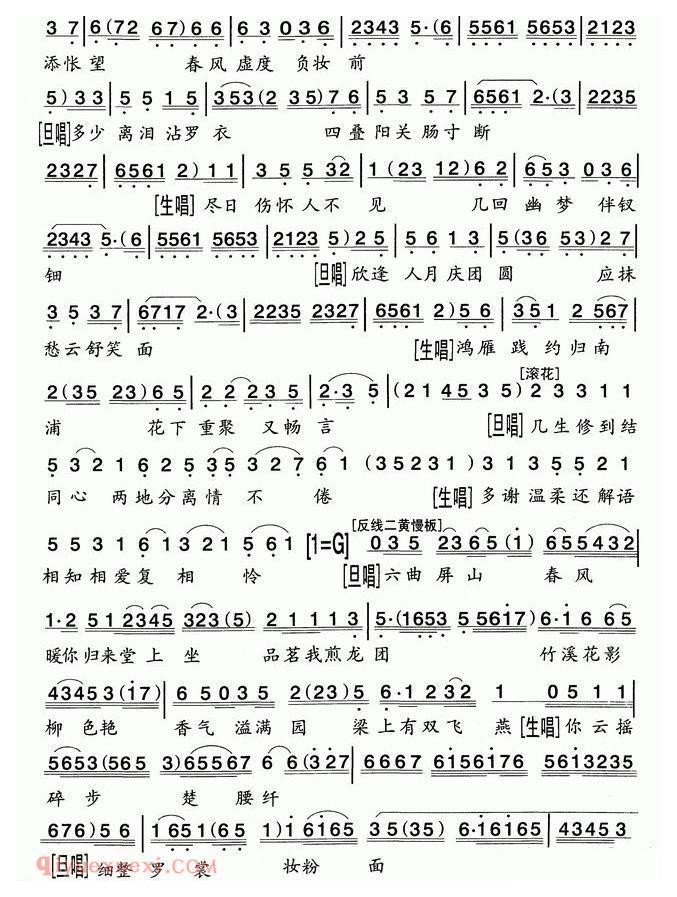 3 7 | 6 (7 2 6 7) 6 6 | 6 3 0 3 6 | 2343 5·(6 | 5561 5653 | 2123
添怅望 春风虚度 负妆前
5) 3 3 | 5 5 1 5 | 353(2 3 5) 7 6 | 5 3 5 7 | 6561 2·(3 | 2235
[旦唱]多少离泪沾罗衣 四叠阳关肠寸断
2327 | 6561 2) 1 1 | 3 5 5 32 | 1 (23 12) 6 2 | 653 036 |
[生唱]尽日伤怀人不见 几回幽梦伴钗
2343 5·(6 | 5561 5653 | 2123 5) 2 5 | 5 6 1 3 | 5 (36 53) 2 7 |
钿 [旦唱]欣逢人月庆团圆 应抹
3 5 3 7 | 6717 2·(3 | 2235 2327 | 6561 2) 5 6 | 351 2 567 |
愁云舒笑面 [生唱]鸿雁践约归南
2 (35 23) 6 5 | 2 2 235 | 2·3 5 | (2 1 4 5 3 5) [滚花] 2 3 3 1 1
浦 花下重聚又畅言 [旦唱]几生修到结
5 3 2 1 6 2 5 3 5 3 2 7 6 1 (3 5 2 3 1) 3 1 3 5 2 1
同心两地分离情不倦 [生唱]多谢温柔还解语
5 5 3 1 6 1 3 2 1 5 6 1 [1=G] [反线二黄慢板] 0 3 5 2365 (1) 655432
相知相爱复相怜 [旦唱]六曲屏山春风
1·2 5 1 2345 323(5) | 2 1 1 1 3 | 5·(1653 55617) 6·1 6 65
暖你归来堂上坐 品茗我煎龙团 竹溪花影
43453(17) | 6 5035 2(23)5 6·1232 1 051 1
柳色艳 香气溢满园 梁上有双飞燕[生唱]你云摇
5653(565 3)65567 6 6(327 | 6667 6156176 5613235
碎步楚腰纤
676) 5 6 | 1 651(65 1)16165 35(35) 6·16165 | 43453
[旦唱]细整罗裳 妆粉面